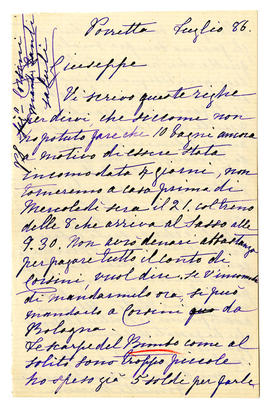 Porretta Luglio 86.
Giuseppe
Vi scrivo queste righe
per dirvi che siccome non
ho potuto fare che 10 Bagni ancora
a motivo di essere stata
incomodata 7 giorni, non
torneremo a casa prima di
Mercoledì sera il 21. col treno
delle 8 che arriva al Sasso alle
9.30. Non avrò denari abbastanza
per pagare tutto il conto di
Corsini, vuol dire. se v'incomoda
di mandarmelo ora, si può
mandarlo a Corsini da
Bologna.
Le scarpe del Bimbo come al
solito sono troppo piccole
ho speso già 5 soldi per farle
Corsini